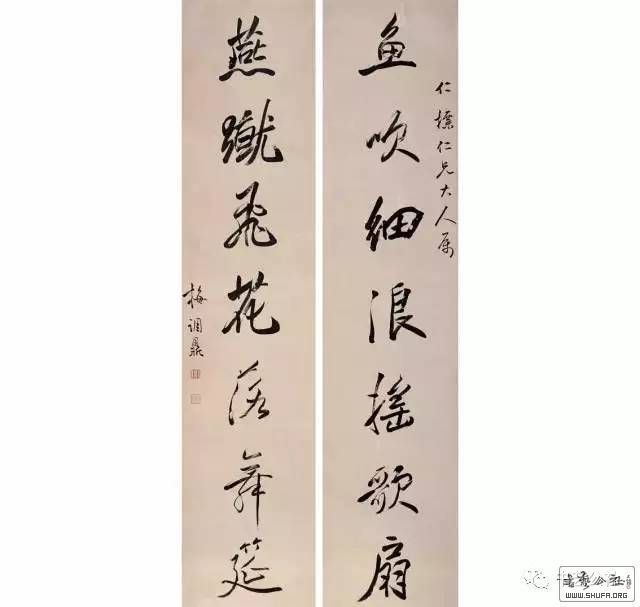 仁標仁兄大人属
鱼吹细浪摇歌扇
燕蹴飛花落舞筵
梅调鼎
WWW.SHUFA.ORG